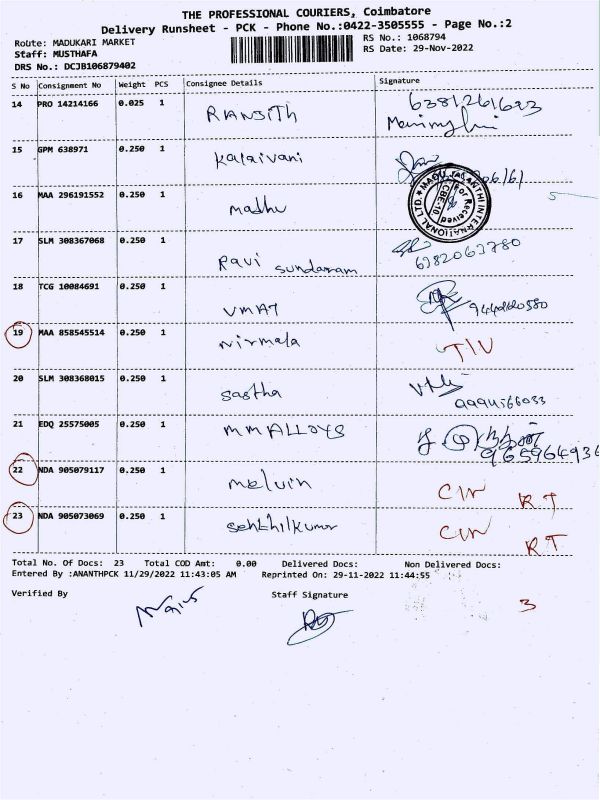 THE PROFESSIONAL COURIERS, Coimbatore
Delivery Runsheet - PCK - Phone No.:0422-3505555 - Page No.:2
Route: MADUKARI MARKET
RS No.: 1068794
Staff: MUSTHAFA
RS Date: 29-Nov-2022
DRS No.: DCJB106879402
S No Consignment No Weight PCS Consignee Details Signature
14 PRO 14214166 0.025 1 RANJITH 6381261633
15 GPM 638971 0.250 1 Kalaivani
16 MAA 296191552 0.250 1 madhu
For Received
CBE-10
INTERNATIONAL LTD.
17 SLM 308367068 0.250 1 Ravi Sundaram 6382063780
18 TCG 10084691 0.250 1 VMAT
19 MAA 858545514 0.250 1 Nirmala
20 SLM 308368015 0.250 1 Sastha
21 EDQ 25575005 0.250 1 MM ALLOYS
22 NDA 905079117 0.250 1 Melvin R T
23 NDA 905073069 0.250 1 Senthilkumar R T
Total No. Of Docs: 23 Total COD Amt: 0.00 Delivered Docs: Non Delivered Docs:
Entered By :ANANTHPCK 11/29/2022 11:43:05 AM Reprinted On: 29-11-2022 11:44:55
Verified By Staff Signature
3